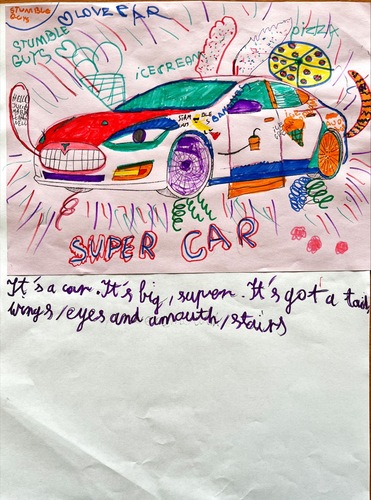 STUMBLE
GUYS
LOVE
STUMBLE
GUYS
iCECREAM
PIZZA
HELLO
SUPER CAR
It's a car. It's big, super. It's got a tail,
wings/eyes and amouth/stairs